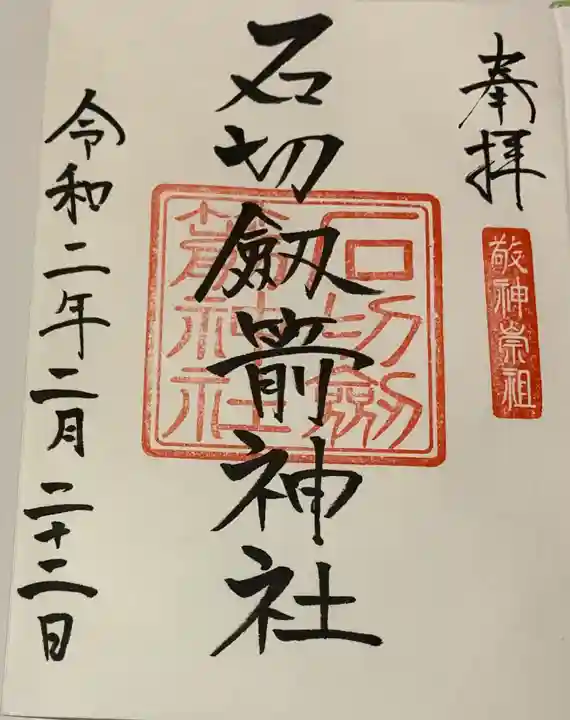 奉拝
敬神崇祖
石切劔箭神社
石切劔
箭神社
令和二年二月二十二日